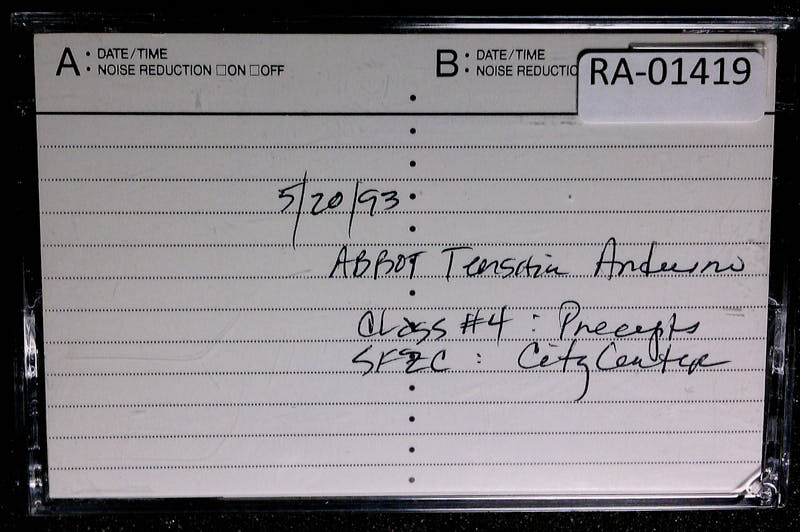 A • DATE/TIME
• NOISE REDUCTION □ON □OFF
B • DATE/TIME
• NOISE REDUCTIO
RA-01419
5/20/93
ABBOT Tenshin Anderson
Class #4 : Precepts
SFZC : City Center